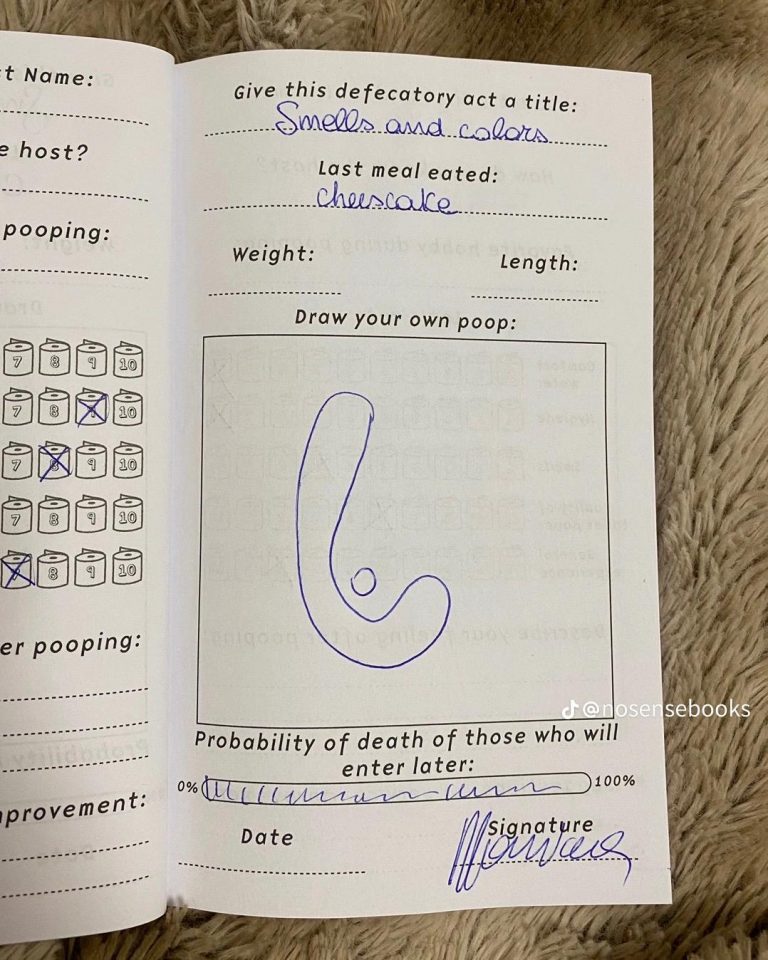 t Name:
e host?
pooping:
7 8 9 10
7 8 9 10
7 8 9 10
7 8 9 10
7 8 9 10
er pooping:
provement:
Give this defecatory act a title:
Smells and colors
Last meal eated:
cheescake
Weight: Length:
Draw your own poop:
@nosensebooks
Probability of death of those who will
enter later:
0% 100%
Date Signature